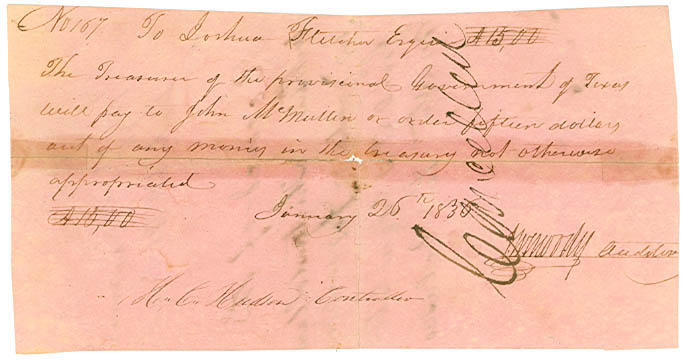 No 167 To Joshua Fletcher Esqr $15,00
The Treasurer of the provisional Government of Texas
will pay to John McMullin or order fifteen dollars
out of any monies in the treasury not otherwise
appropriated
$15,00
January 26th 1836
Auditor
H. C. Hudson Controller
Cancelled